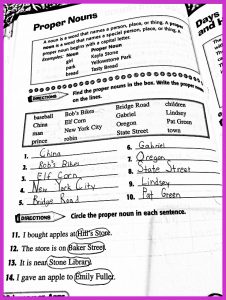 Proper Nouns
A noun is a word that names a person, place, or thing. A proper
noun is a word that names a special person, place, or thing. A
proper noun begins with a capital letter.
Examples: Noun Proper Noun
girl Kayla Stone
park Yellowstone Park
bread Tasty Bread
Days
and H
DIRECTIONS Find the proper nouns in the box. Write the proper
on the lines.
baseball Bob's Bikes Bridge Road children
China Elf Corn Gabriel Lindsey
man New York City Oregon Pat Green
prince robin State Street town
1. China
2. Bob's Bikes
3. Elf Corn
4. New York City
5. Bridge Road
6. Gabriel
7. Oregon
8. State Street
9. Lindsey
10. Pat Green
DIRECTIONS Circle the proper noun in each sentence.
11. I bought apples at Hill's Store.
12. The store is on Baker Street.
13. It is near Stone Library.
14. I gave an apple to Emily Fuller.